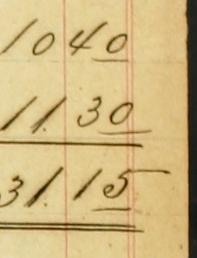 1040
11.30
31.15